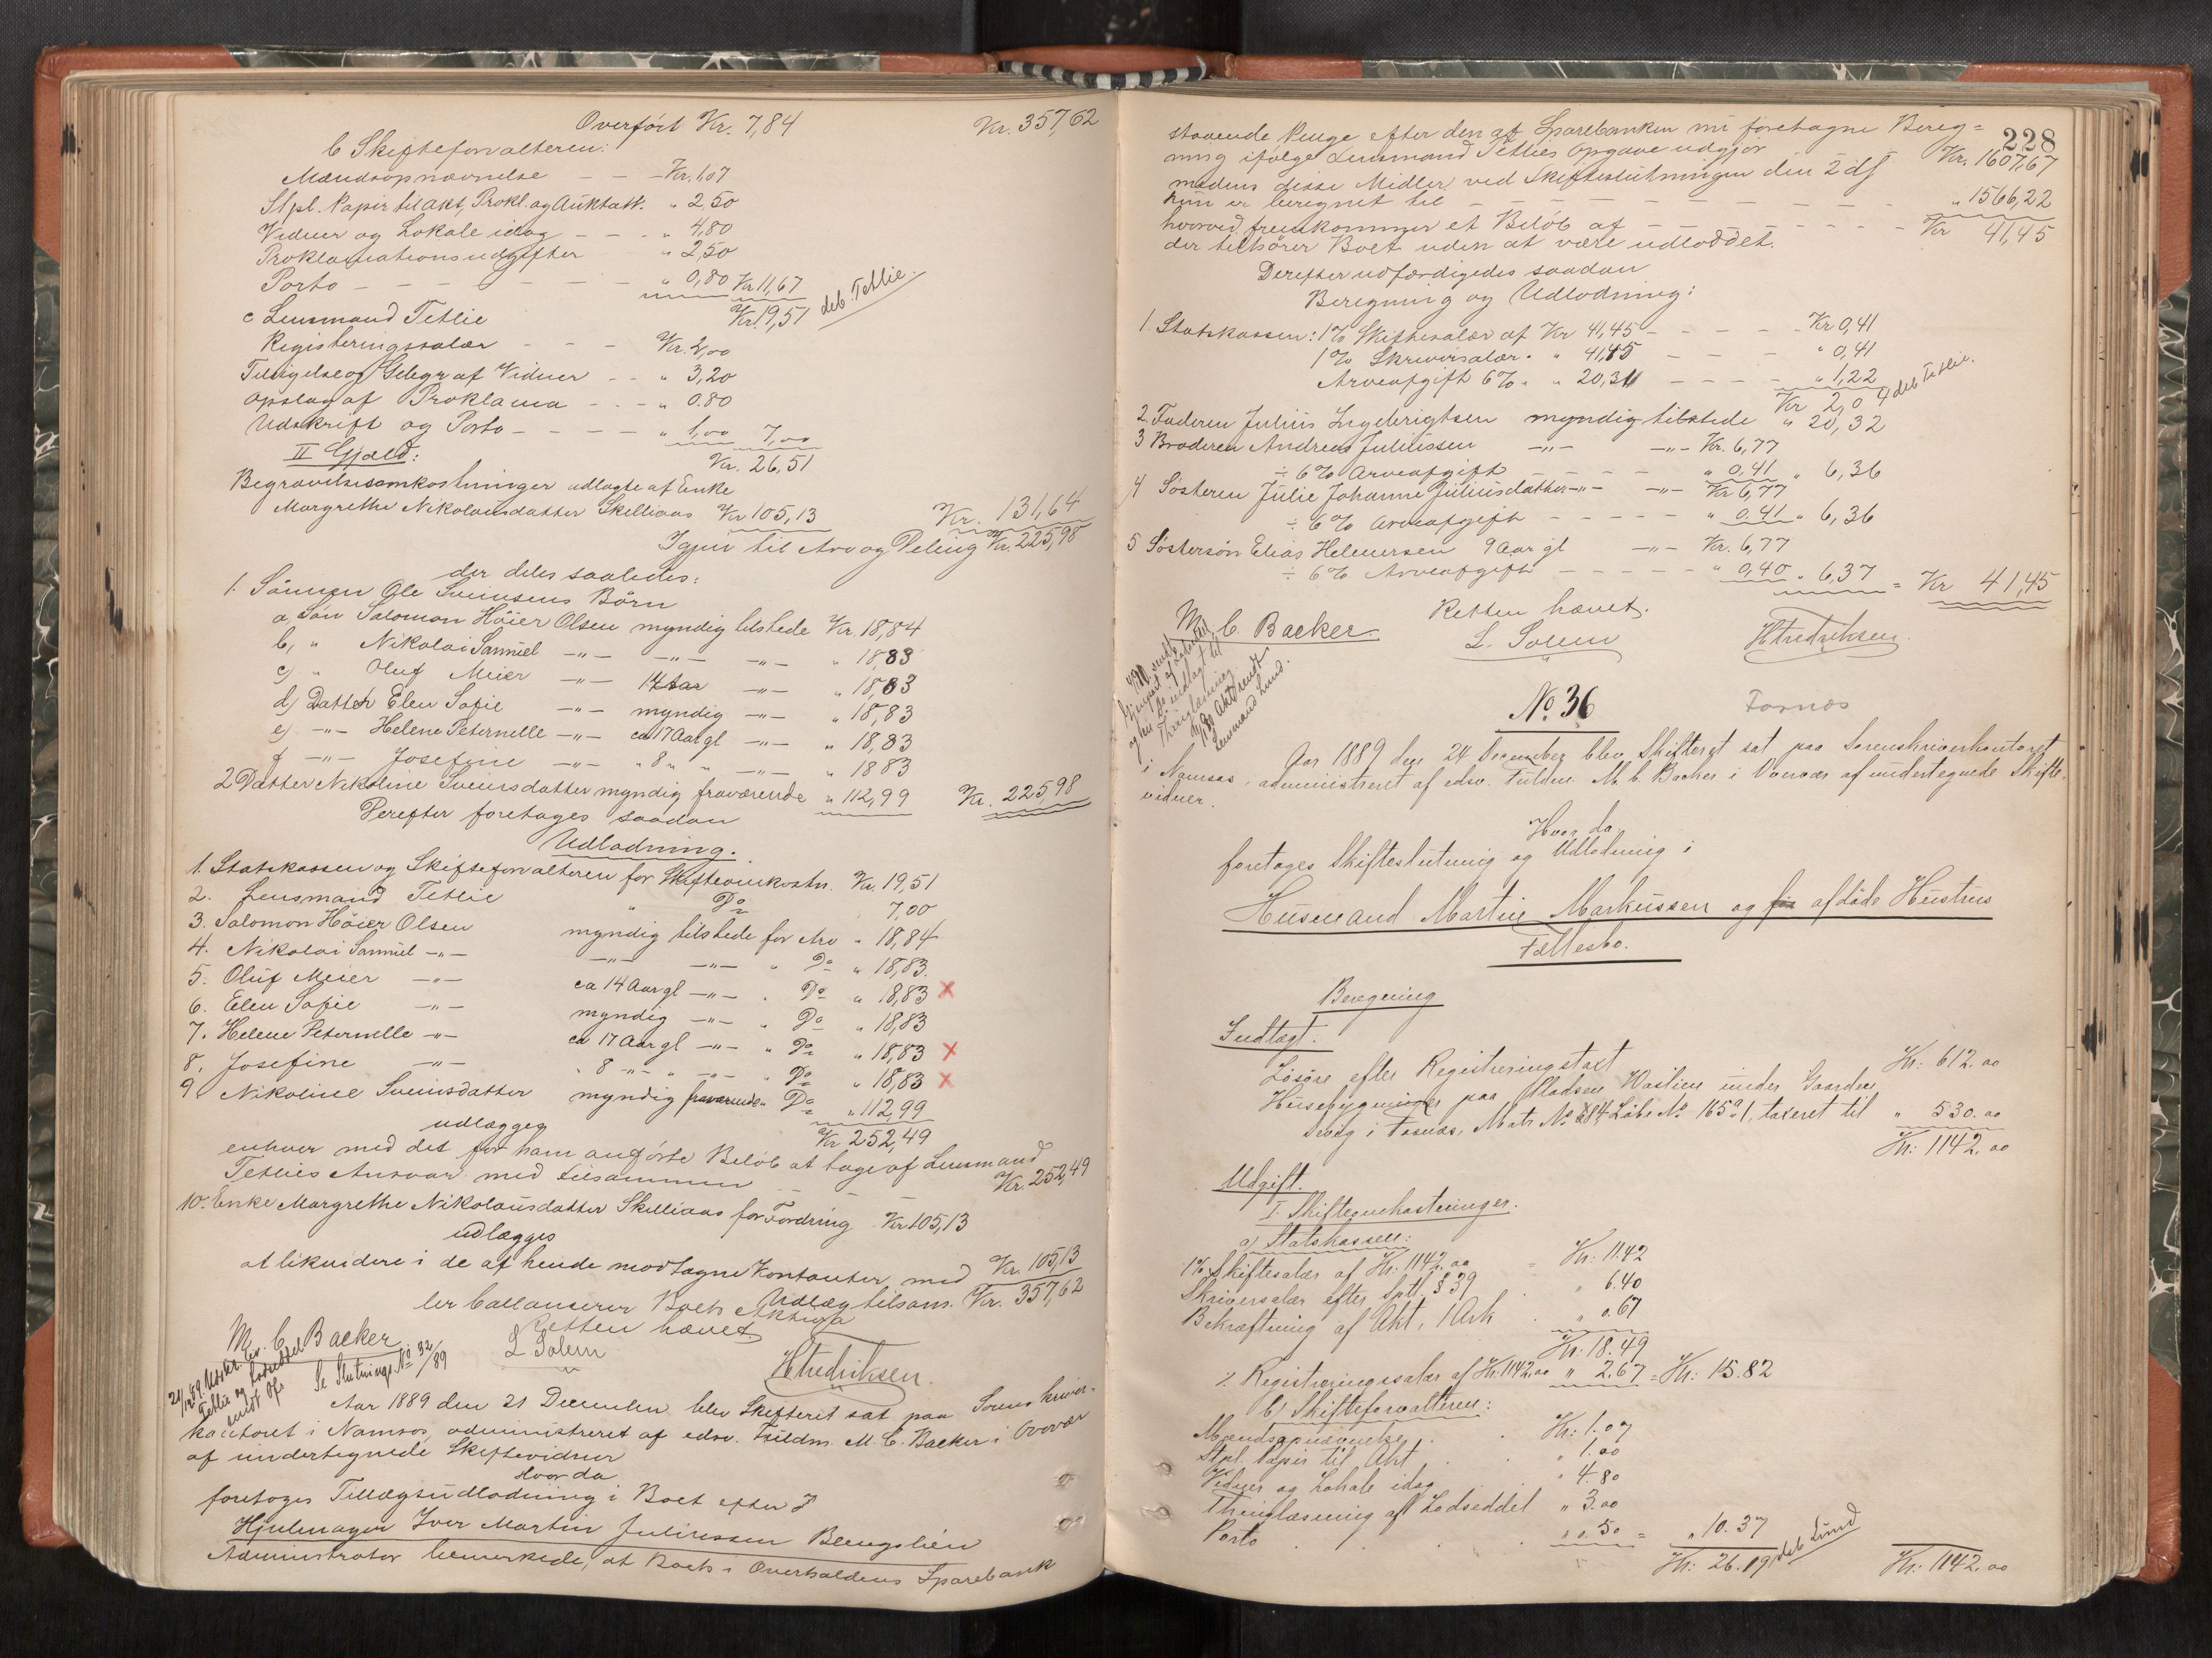 Overført Kr. 7,84 Kr. 357,62
b Skifteforvalteren:
Mændsopnævnelse - - - Kr. 1,07
Stpl. Papir til Akt, Prokl. og Auktatt. " 2,50
Vidner og Lokale idag - - - " 4,80
Proklamationsudgifter " 2,50
Porto - - - - - - - " 0,80 Kr 11,67
Kr. 19,51 deb. Tetlie.
c Lensmand Tetlie
Registeringssalær - - - Kr. 2,00
Tilsigelse og Gebyr af Vidner - - " 3,20
Opslag af Proklama - - - " 0.80
Udskrift og Porto - - - - " 1,00 7,00
Kr. 26,51
II Gjæld:
Begravelsesomkostninger udlagte af Enke
Margrethe Nikolausdatter Skilliaas Kr 105,13 Kr. 131,64
Igjen til Arv og Deling Kr. 225,98
der deles saaledes:
1. Sønnen Ole Sveinsens Børn
a, Søn Salomon Høier Olsen myndig tilstede Kr. 18,84
b, " Nikolai Samuel -"- -"- -"- " 18,83
c) " Oluf Meier -"- 14 Aar -"- " 18,83
d) Datter Elen Sofie -"- myndig -"- " 18,83
e) -"- Helene Peternelle -"- ca 17 Aar gl -"- " 18,83
f -"- Josefine -"- " 8 " " -"- " 18 83
2 Datter Nikoline Sveinsdatter myndig fraværende " 112,99 Kr. 225,98
Derefter foretages saadan
Udlodning.
1. Statskassen og Skifteforvalteren for Skifteomkostn. Kr. 19,51
2. Lensmand Tetlie " Do 7,00
3. Salomon Høier Olsen myndig tilstede for Arv " 18,84
4. Nikolai Samuel -"- -"- -"- " Do " 18,83.
5. Oluf Meier -"- ca 14 Aar gl -"- " Do " 18,83 x
6. Elen Sofie -"- myndig -"- " Do " 18,83
7. Helene Peternelle -"- ca 17 Aar gl -"- " Do " 18,83 x
8. Josefine -"- " 8 -"- " -"- " Do " 18,83 x
9 Nikoline Sveinsdatter myndig fraværende " Do " 112,99
udlægges Kr 252,49
enhver med det for ham anførte Beløb at tage af Lensmand
Tetlies Ansvar med tilsammen - - - Kr. 252,49
10. Enke Margrethe Nikolausdatter Skilliaas for Fordring Kr 105,13
udlægges
at likvidere i de af hende modtagne Kontanter med Kr. 105,13
Udlæg tilsam. Kr. 357,62
der ballancerer Boets Aktiva
Retten hævet.
M. C. Backer L Solem HFredriksen.
24/12 89. Udskr. Lsm. Tetlie og Lodseddel sendt Ofs
Se Slutning No 32/89
Aar 1889 den 21 December blev Skifteret sat paa Sorenskriver-
kontoret i Namsos, administreret af edsv. Fuldm. M. C. Backer i Overvær
af undertegnede Skiftevidner
Hvor da
foretoges Tillægsudlodning i Boet efter
Hjulmager Iver Martin Juliussen Bengslien
Administrator bemærkede, at Boets i Overhaldens Sparebank
228
staaende Penge efter den af Sparebanken nu foretagne Bereg=
ning ifølge Lensmand Tetlies Opgave udgjør Kr. 1607,67
medens disse Midler ved Skifteslutningen den 2 ds
kun er beregnet til - - - - - - - - " 1566,22
hvorved fremkommer et Beløb af - - - - - Kr 41,45
der tilhører Boet uden at være udloddet.
Derefter udfærdigedes saadan
Beregning og Udlodning:
1. Statskassen: 1% Skiftesalær af Kr 41,45 - - - - Kr 0,41
1% Skriversalær. " 41,45 - - - " 0,41
Arveafgift 6% " " 20,31 - - - - " 1,22
Kr 2,04 deb Tetlie.
2. Faderen Julius Ingebrigtsen myndig tilstede " 20,32
3 Broderen Andreas Juliussen -"- -"- Kr. 6,77
÷ 6% Arveafgift - - - - " 0,41 " 6,36
4 Søsteren Julie Johanne Juliusdatter -"- -"- Kr 6,77
÷ 6% Arveafgift - - - - - " 0.41 " 6,36
5 Søstersøn Elias Helmersen 9 Aar gl -"- Kr. 6,77
÷ 6% Arveafgift - - - - - " 0,40 " 6,37 = Kr 41,45
Retten hævet.
M. C. Backer. L. Solem HFredriksen.
No. 36 Fosnæs
Aar 1889 den 24 December blev Skifteret sat paa Sorenskriverkontoret
i Namsos, administreret af edsv. Fuldm. M. C. Backer i Overvær af undertegnede Skifte-
vidner.
Hvor da
foretages Skifteslutning og Udlodning i
Husmand Martin Markussen og afdøde Hustrus
Fællesbo.
Beregning
Indtægt:
Løsøre efter Registreringstaxt Kr: 612.00
Husebygninger paa Pladsen under Gaarden
i Fosnæs, Matr No Løbe No 165a1, taxeret til " 530.00
Kr: 1142.00
Udgift.
I. Skifteomkostninger.
a) Statskassen:
1% Skiftesalær af Kr: 1142.00 = Kr: 11.42
Skriversalær efter Sptl. § 39 . " 6.40
Bekræftning af Akt, 1 Ark . " 0.67
Kr: 18.49
÷ Registreringssalær af Kr. 1142.00 " 2.67 = Kr: 15.82
b) Skifteforvalteren:
Mændsopnævnelse . . Kr: 1.07
Stpl. Papir til Akt . . " 1.00
Vidner og Lokale idag . " 4.80
Thinglæsning af Lodseddel " 3.00
Porto . . . . " 0.50 = " 10.37
Kr: 26.19 deb Lund Kr: 1142.00